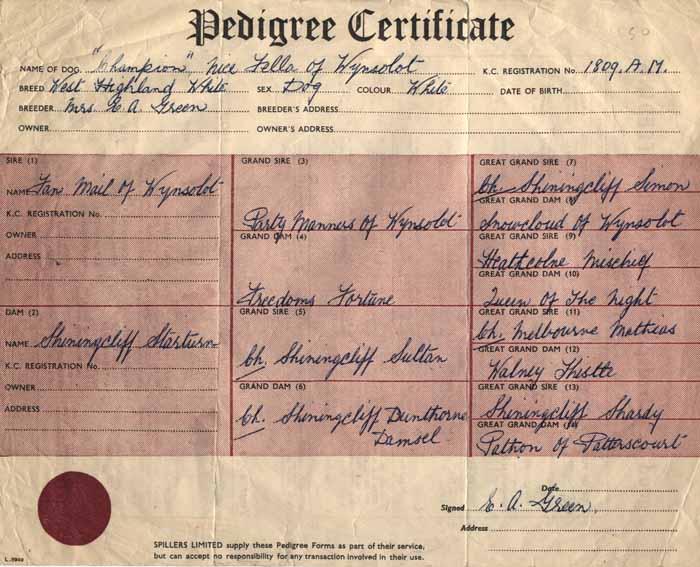 Pedigree Certificate
NAME OF DOG. "Champion" Nice Fella of Wynsolot K.C. REGISTRATION No. 1809. A.M.
BREED West Highland White SEX. Dog COLOUR White DATE OF BIRTH
BREEDER. Mrs. E. A. Green BREEDER'S ADDRESS
OWNER OWNER'S ADDRESS
SIRE (1)
NAME Fan Mail of Wynsolot
K.C. REGISTRATION No.
OWNER
ADDRESS
DAM (2)
NAME Shiningcliff Starturn
K.C. REGISTRATION No.
OWNER
ADDRESS
GRAND SIRE (3)
Party Manners Of Wynsolot
GRAND DAM (4)
Freedoms Fortune
GRAND SIRE (5)
Ch. Shiningcliff Sultan
GRAND DAM (6)
Ch. Shiningcliff Dunthorne
Damsel
GREAT GRAND SIRE (7)
Ch. Shiningcliff Simon
GREAT GRAND DAM (8)
Snowcloud Of Wynsolot
GREAT GRAND SIRE (9)
Heathcolne Mischief
GREAT GRAND DAM (10)
Queen Of The Night
GREAT GRAND SIRE (11)
Ch. Melbourne Mathias
GREAT GRAND DAM (12)
Walney Thistle
GREAT GRAND SIRE (13)
Shiningcliff Shardy
GREAT GRAND DAM (14)
of Patterscourt
Date
Signed E. A. Green.
Address
SPILLERS LIMITED supply these Pedigree Forms as part of their service,
but can accept no responsibility for any transaction involved in their use.